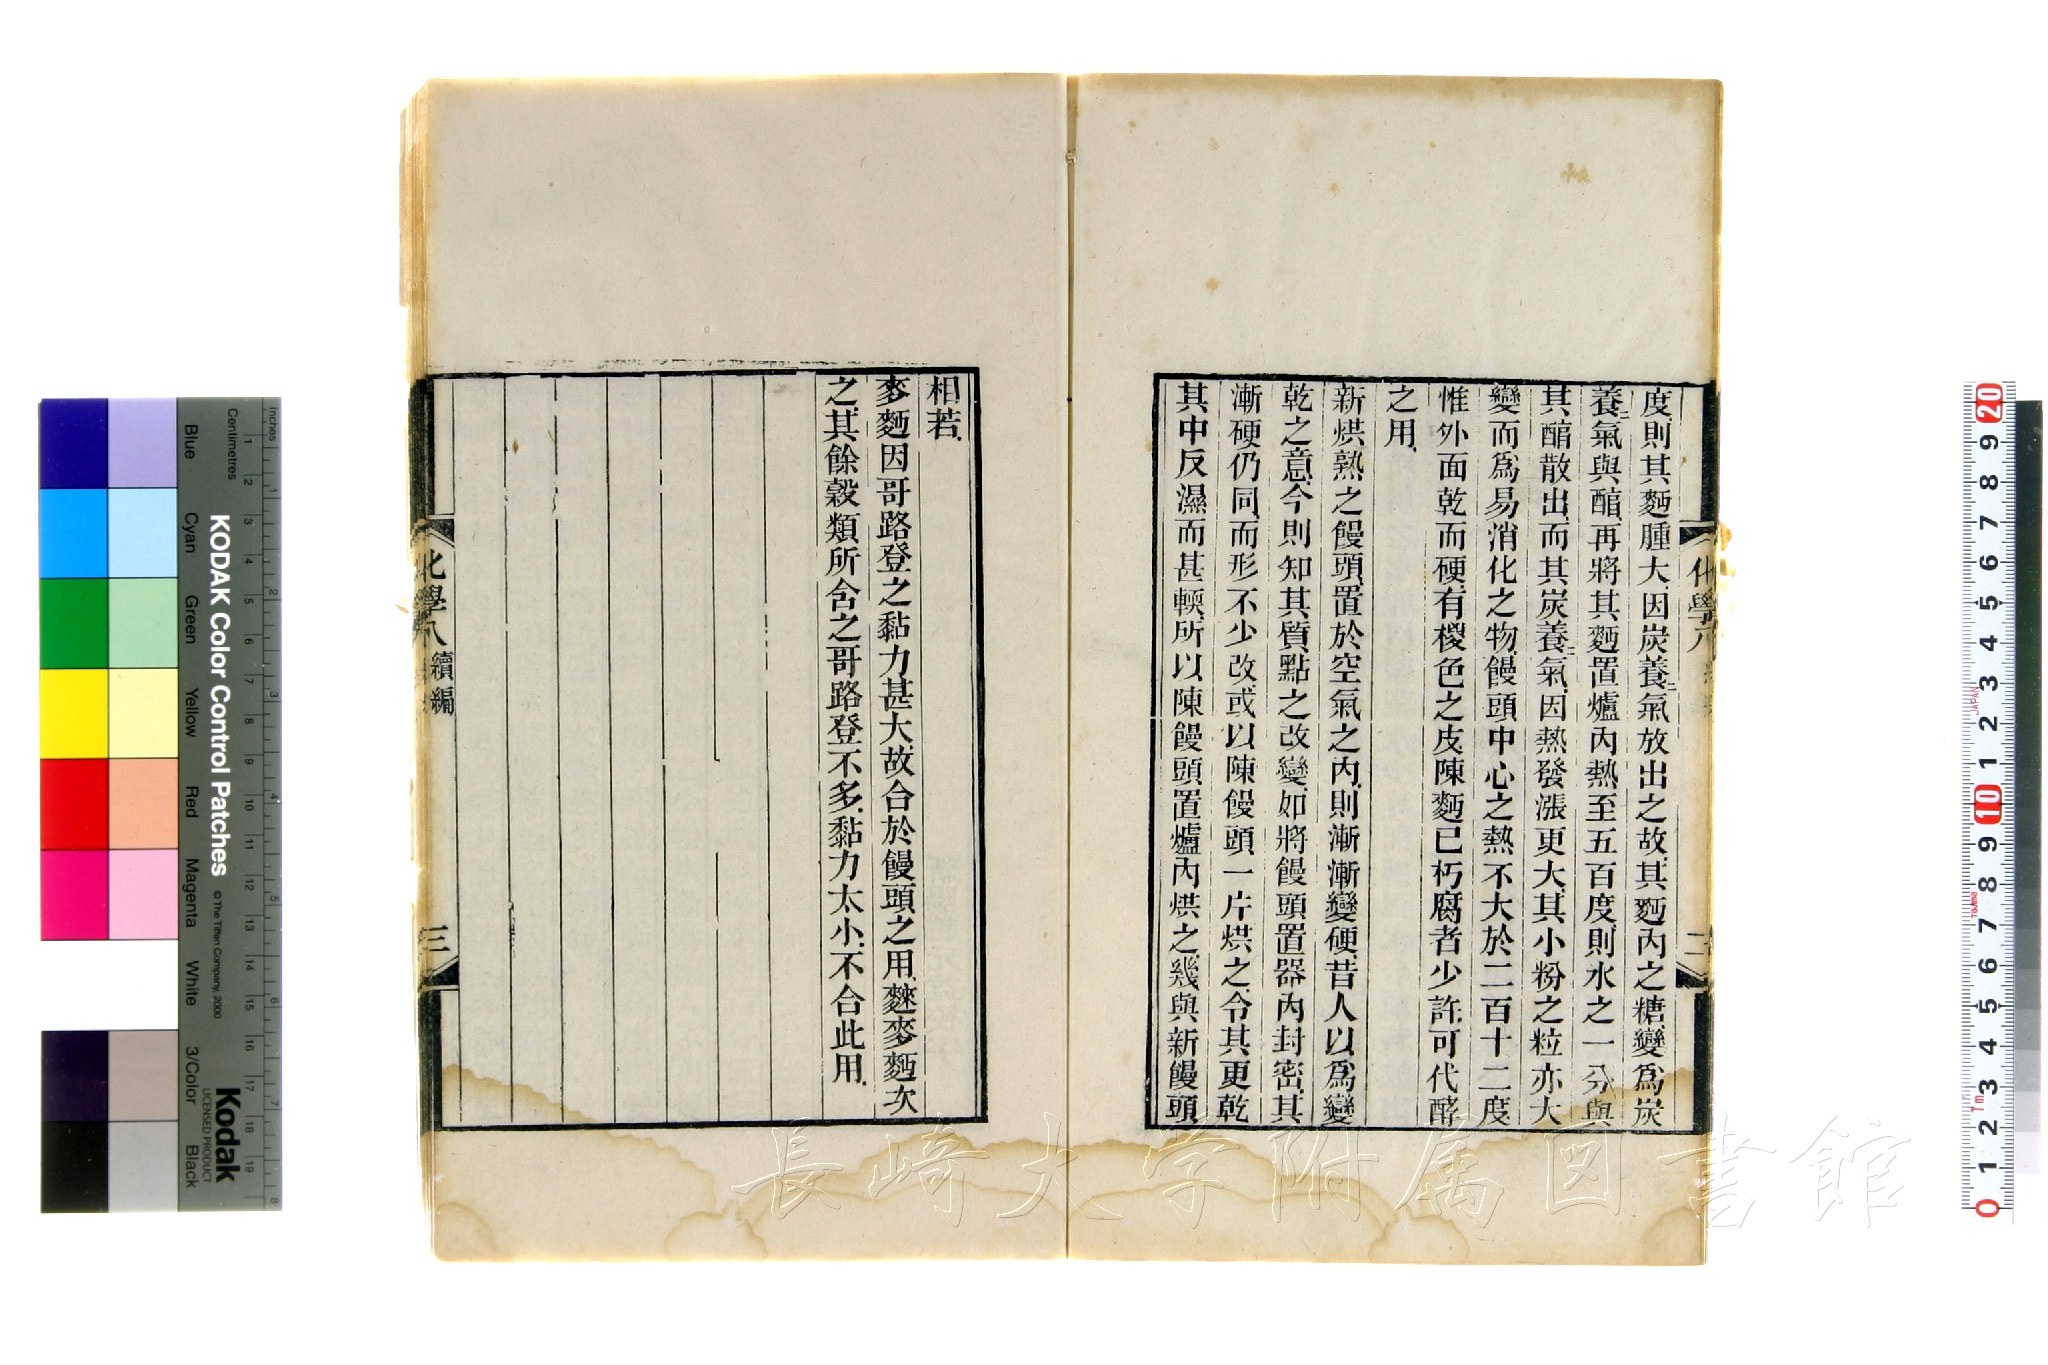 度則其麪腫大因炭養二氣放出之故其麪內之糖變爲炭
養二氣與醕再將其麪置爐內熱至五百度則水之一分與
其醕散出而其炭養二氣因熱發漲更大其小粉之粒亦大
變而爲易消化之物饅頭中心之熱不大於二百十二度
惟外面乾而硬有椶色之皮陳麪已朽腐者少許可代酵
之用
新烘熟之饅頭置於空氣之內則漸漸變硬昔人以爲變
乾之意今則知其質點之改變如將饅頭置器內封密其
漸硬仍同而形不少改或以陳饅頭一片烘之令其更乾
其中反濕而甚輭所以陳饅頭置爐內烘之幾與新饅頭
化學八
二
相若
麥麪因哥路登之黏力甚大故合於饅頭之用麰麥麪次
之其餘穀類所含之哥路登不多黏力太小不合此用
化學八 續編
三
長崎大学附属図書館
KODAK Color Control Patches
© The Tiffen Company, 2000
Kodak
LICENSED PRODUCT
Inches
Centimetres
Blue
Cyan
Green
Yellow
Red
Magenta
White
3/Color
Black
1 2 3 4 5 6 7 8 9 10 11 12 13 14 15 16 17 18 19
1 2 3 4 5 6 7 8
20 9 8 7 6 5 4 3 2 1 10 9 8 7 6 5 4 3 2 1 0
JAPAN
1m